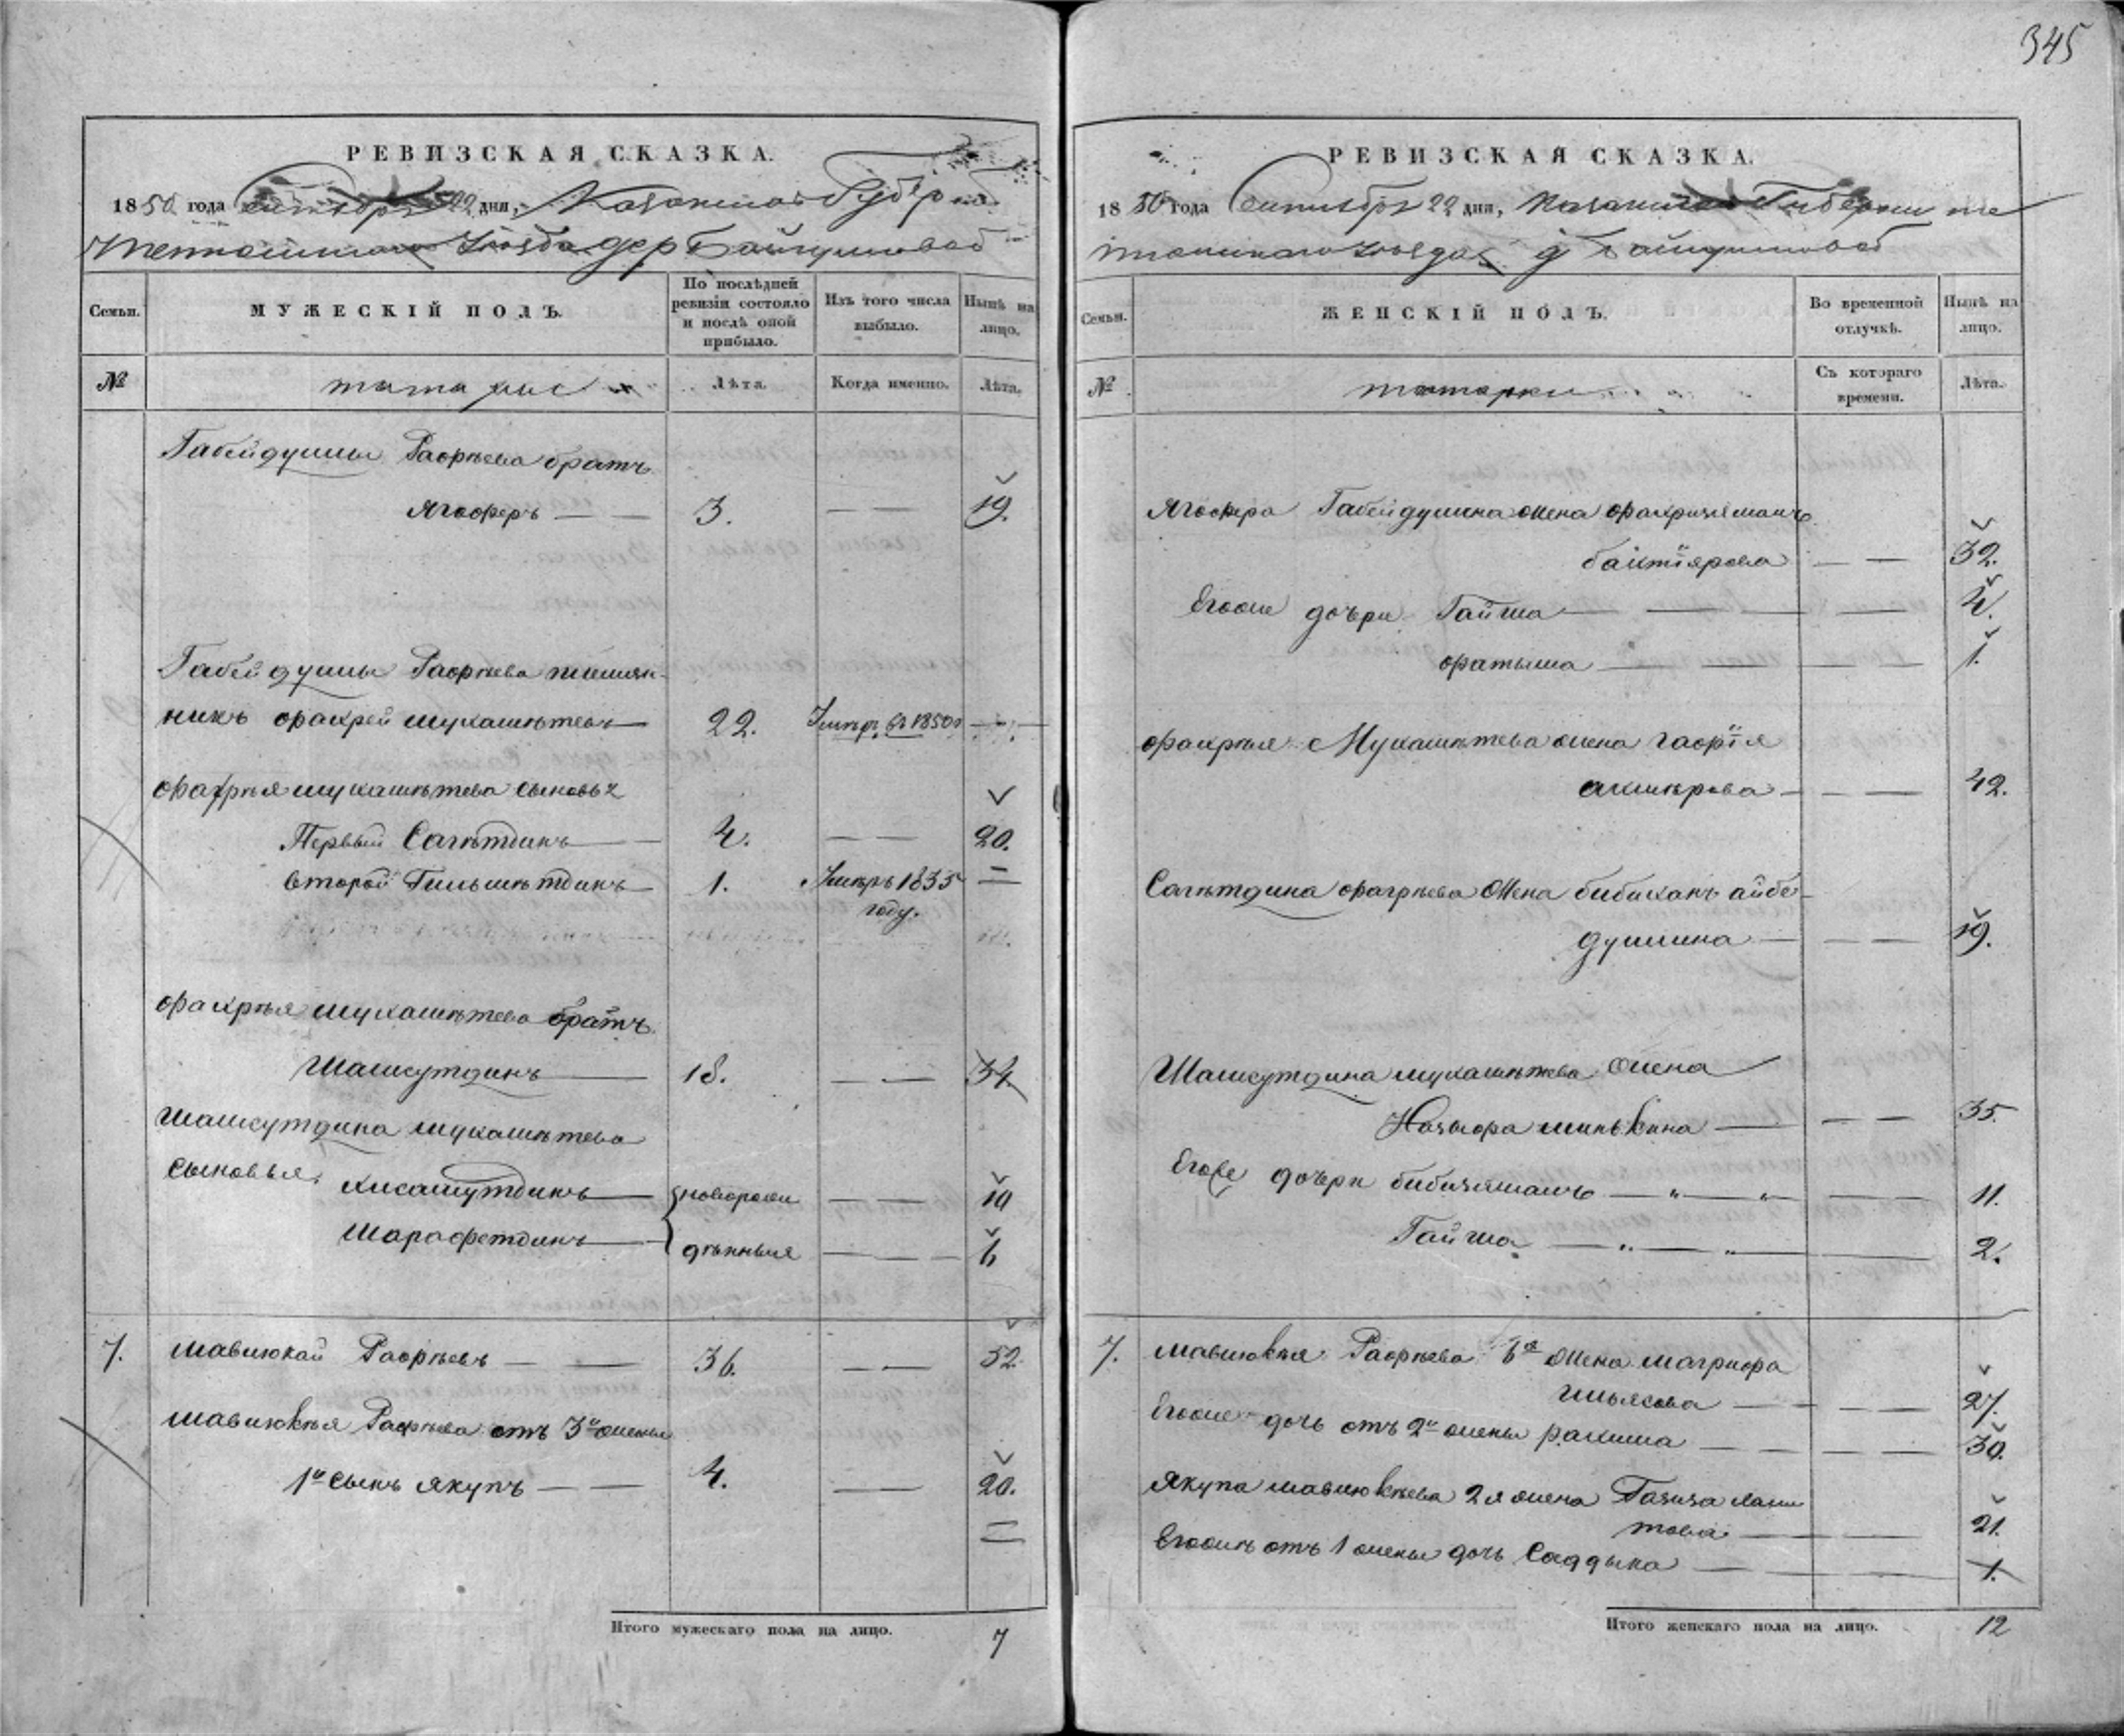 345
РЕВИЗСКАЯ СКАЗКА.
1850 года Сентября 22 дня, Казанской Губернiи
Тетюшскаго Уѣзда дер Байгуловой
Семьи.
МУЖЕСКІЙ ПОЛЪ.
По послѣдней ревизіи состояло и послѣ оной прибыло.
Изъ того числа выбыло.
Нынѣ на лицо.
№
татары
Лѣта.
Когда именно.
Лѣта.
Габейдуллы Гафрѣева братъ
Ягоферъ — — 3. — — 19.
Габейдуллы Гафрѣева племян-
никъ Фахрей Мухаметевъ — 22. Умеръ въ 1850 — —
Фахрѣя Мухаметева сыновья
Первый Сагѣтдинъ — 4. — — 20.
второй Гильметдинъ — 1. Умеръ 1835 году. —
Фахрѣя Мухаметева братъ
Шамсутдинъ — 18. — — 34.
Шамсутдина Мухаметева
сыновья, Хисамутдинъ — новорож — — 10
Шарафетдинъ — дѣнныя — — 6
7. Мавлюкай Гафрѣевъ — — 36. — — 52.
Мавлюкѣя Гафрѣева отъ 3й жены
1й сынъ Якупъ — — 4. — 20.
Итого мужескаго пола на лицо. 7
РЕВИЗСКАЯ СКАЗКА.
1850 года Сентября 22 дня, Казанской Губернiи Те
тюшскаго Уѣзда д Байгуловой
Семьи.
ЖЕНСКІЙ ПОЛЪ.
Во временной отлучкѣ.
Нынѣ на лицо.
№
татарки
Съ котораго времени.
Лѣта.
Ягофера Габейдуллина жена Фахризяманъ
Бахтіярова — — 32.
Егоже дочери Гайша — — — — 4.
Фатыма — — — 1.
Фахрѣя Мухаметева жена Гафія
Акмѣрова — — — 42.
Сагѣтдина Фахрѣева жена Бибиханъ Айбе-
дуллина — — — 19.
Шамсутдина Мухаметева жена
минькина — — — 35.
Егоже дочери Бибизяманъ — " — " — 11.
Гайша — " — " — 2.
7. Мавлюкѣя Гафрѣева жена Магрифа
Ильясова — — — 27.
Егоже дочь отъ 2й жены Рахима — — — 30.
Якупа Мавлюкѣева 2я жена Газиза
това — — 21.
Егожъ отъ 1 жены дочь Саддыка — — 1.
Итого женскаго пола на лицо. 12